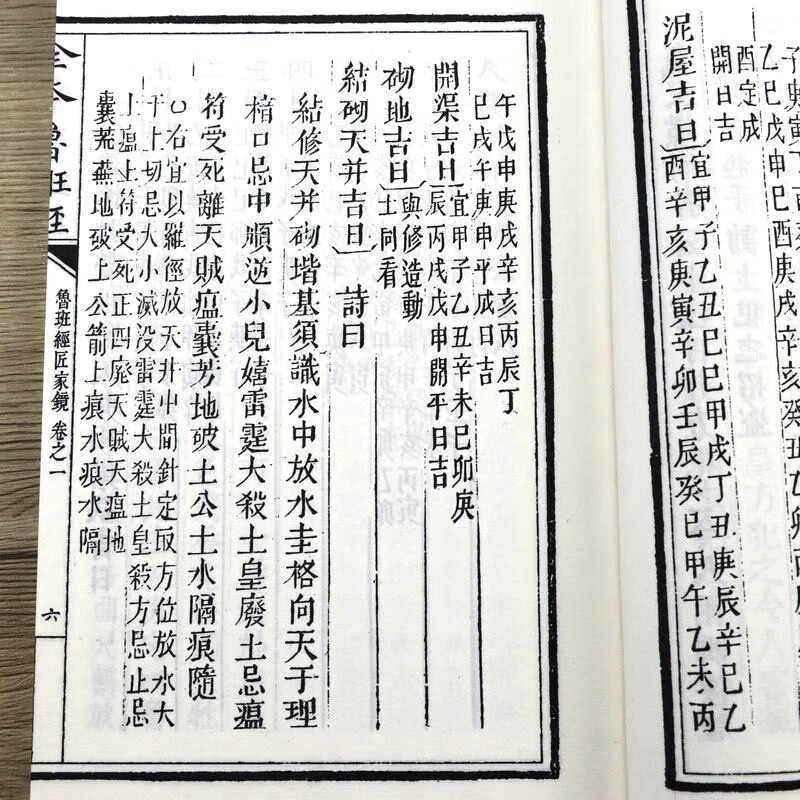 酉定成
開日吉
泥屋吉日
宜甲子乙丑巳巳甲戌丁丑庚辰辛巳乙
酉辛亥庚寅辛卯壬辰癸巳甲午乙未丙
午戊申庚戌辛亥丙辰丁
巳戌午庚申平成日吉
開渠吉日
宜甲子乙丑辛未巳卯庚
辰丙戌戊申開平日吉
砌地吉日
與修造動
土同看
結砌天井吉日
詩曰
結修天井砌堦基須識水中放水圭格向天干埋
楮口忌中順逆小兒嬉雷霆大殺土皇廢土忌瘟
符受死離天賊瘟囊芳地破土公土水隔痕隨
右宜以羅經放天井中間針定取方位放水大
干上切忌大小滅没雷霆大殺土皇殺方忌止忌
土瘟土符受死正四廢天賊天瘟地
囊荒蕪地破土公箭土痕水痕水隔
魯班經
魯班經匠家鏡 卷之一
六